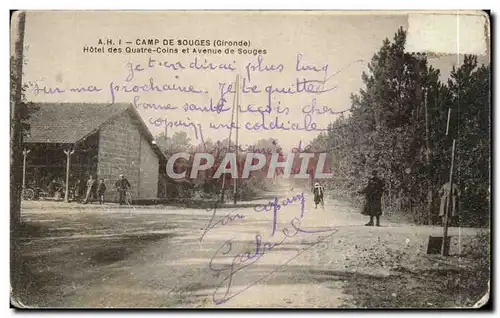 A.H. 1 - CAMP DE SOUGES (Gironde)
Hôtel des Quatre-Coins et Avenue de Souges
je t'en dirai plus long
sur ma prochaine. Je te quitte
bonne santé reçois cher
copain une cordiale
de main
CPHARRAMA
ton copain
Gabriel